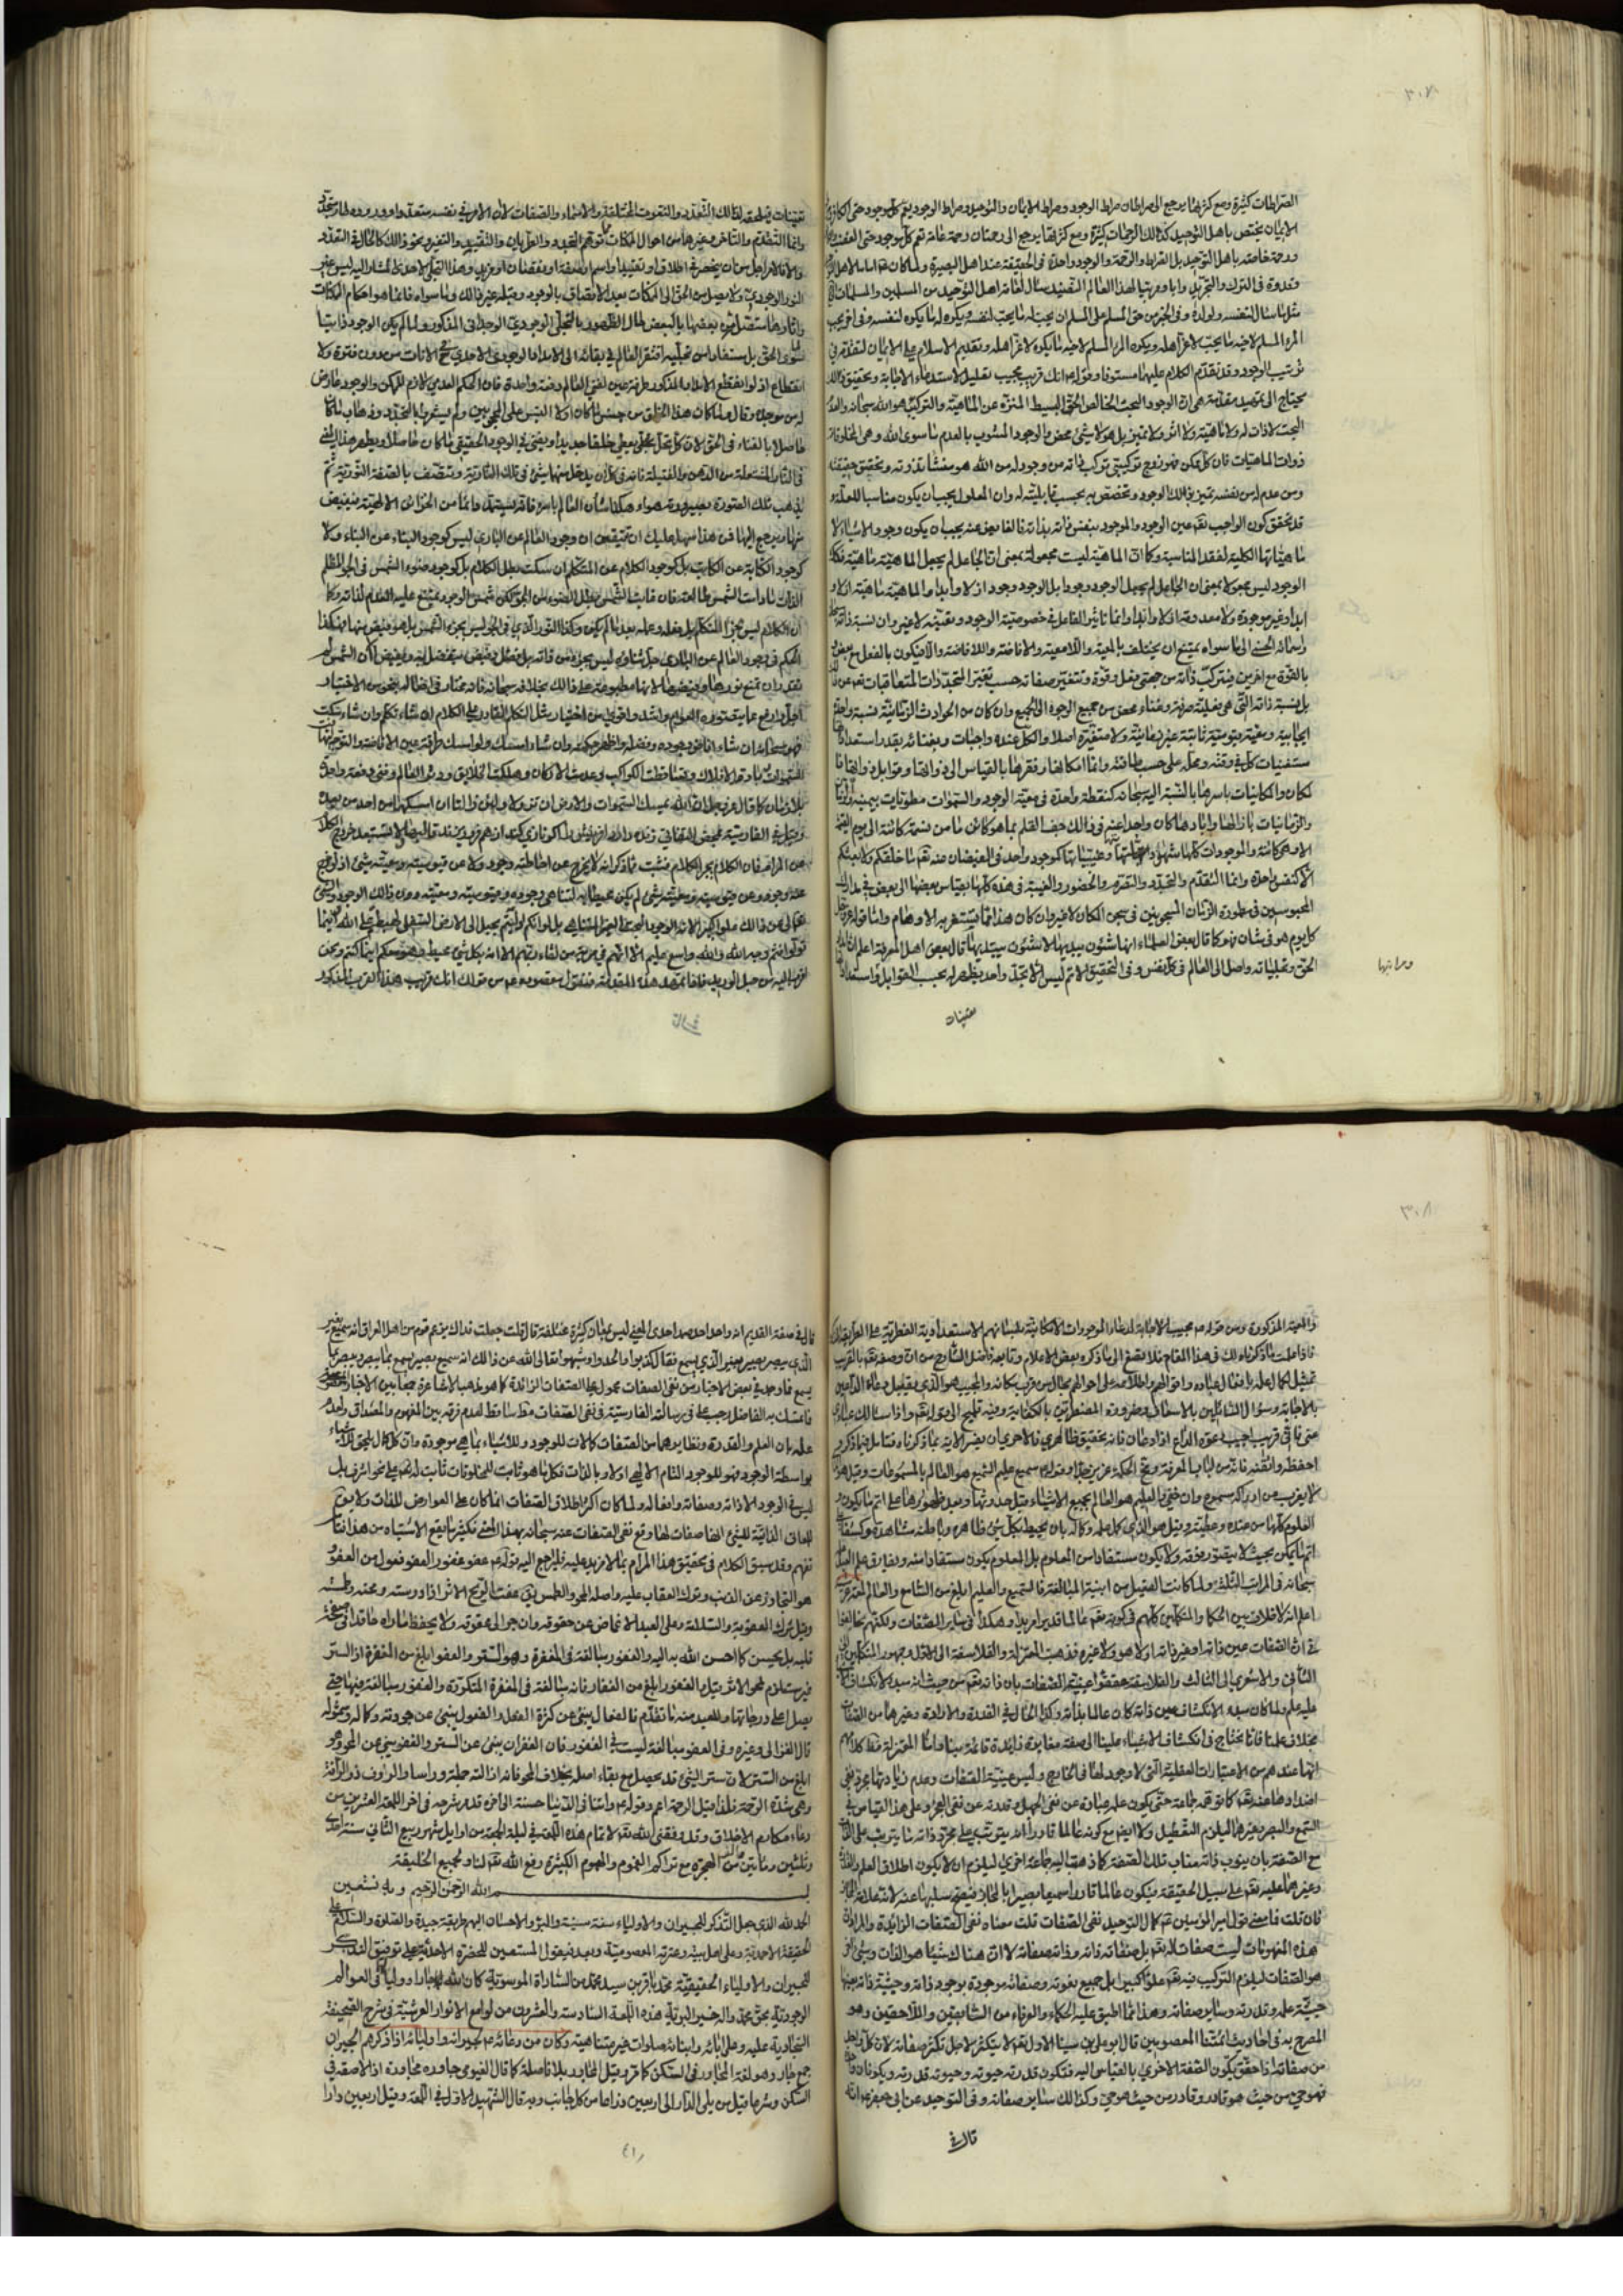 ٣٠٧
الصراطات كثيرة ومع كثرتها يرجع الى صراطان صراط الوجود وصراط الايمان والتوحيد وصراط الوجود يعم كل موجود حتى الكافر
الايمان يختص باهل التوحيد كذلك الرحمات كثيرة ومع كثرتها يرجع الى رحمتان رحمة عامة تعم كل موجود حتى
ورحمة خاصة باهل التوحيد بل الصراط والرحمة والوجود واحدة في الحقيقة عند اهل البصيرة ولما كان
مثل ما سئال لنفسه ولولده وفي الخبر من حق المسلم على المسلم ان يحب له ما يحب لنفسه ويكره له ما يكره لنفسه وفي اخر يجب
المرء المسلم لاخيه ما يحب لاعز اهله ويكره المرء المسلم لاخيه ما يكره لاعز اهله وتقديم الاسلام على الايمان لتقدمه في
ترتيب الوجود وقد تقدم الكلام عليهما مستوفا وقوله انك قريب مجيب تعليل لاستدعاء الاجابة وتحقيق ذلك
يحتاج الى تمهيد مقدمة هي ان الوجود البحت الخالص الحق البسيط المنزه عن الماهية والتركيب هو الله سبحانه
البحت لا ذات له ولا ماهية ولا اثر ولا تميز بل هو لا شئ محض والوجود المشوب بالعدم ما سوى الله وهي المخلوقات
ذوات الماهيات فان كل ممكن فهو زوج تركيبي تركب ذاته من وجود له من الله هو منشا تذوته وتحقيق حقيقته
ومن عدم له من نفسه تميز بذلك الوجود وتخصص به بحسب قابليته له وان المعلول يجب ان يكون مناسبا للعلة
قد تحقق كون الواجب تعالى عين الوجود والموجود بنفس ذاته بذاته فالفايض عنه يجب ان يكون وجود الاشياء لا
ماهياتها الكلية لفقد المناسبة وكما ان الماهية ليست مجعولة بمعنى ان الجاعل لم يجعل الماهية ماهية
الوجود ليس مجعولا بمعنى ان الجاعل لم يجعل الوجود وجودا بل الوجود وجود ازلا وابدا والماهية ماهية ازلا و
ابدا وغير موجودة ولا معدومة ازلا وابدا وانما تاثير الفاعل في خصوصية الوجود وتعينه لا غير وان نسبة ذاته
واسمائه الحسنى الى ما سواه يمتنع ان يختلف بالمعية واللامعية والافاضة واللاافاضة والا فيكون بالفعل مع بعض
بالقوة مع اخرين فيتركب ذاته من جهتي فعل وقوة وتتغير صفاته حسب تغير المتجددات المتعاقبات تعالى عن
بل نسبة ذاته التي هي فعلية صرفة وغناء محض من جميع الوجوه الى الجميع وان كان من الحوادث الزمانية نسبة واحدة
ايجابية ومعية قيومية ثابتة غير زمانية ولا متغيرة اصلا والكل عنده واجبات وبغنائه بقدر استعداداتها
مستغنيات كل في وقته ومحله على حسب طاقته وانما امكانها وفقرها بالقياس الى ذواتها وقوابل ذواتها
لمكان والمكانيات باسرها بالنسبة اليه سبحانه كنقطة واحدة في معية الوجود والسموات مطويات بيمينه
والزمانيات بازالها وابادها كان واحد عنده في ذالك جف القلم بما هو كائن ما من نسمة كائنة الى يوم القيمة
الا وهي كائنة والموجودات كلها شهاداتها وغيبياتها كموجود واحد في الفيضان عنه تعالى ما خلقكم ولا بعثكم
الا كنفس واحدة وانما التقدم والتجدد والتصرم والحضور والغيبة في هذه كلها بقياس بعضها الى بعض في مدارك
المحبوسين في مطمورة الزمان المسجونين في سجن المكان لا غير وان كان هذا مما يستغربه الاوهام واما قوله
كل يوم هو في شان فهو كما قال بعض العلماء انها شئون يبديها لا شئون يبتديها قال بعض اهل المعرفة اعلم
الحق وتجلياته واصل الى العالم في كل نفس وفي التحقيق الاتم ليس الا تجلي واحد يظهر له بحسب القوابل واستعداداتها
ومراتبها
تعينات
تعينات فيلحقه لذالك التعدد والنعوت المختلفة والاسماء والصفات لا ان الامر في نفسه متعدد او وروده طار متجدد
وانما التقدم والتاخر وغيرهما من احوال الممكنات توهم التجدد والطريان والتقييد والتغير ونحو ذالك كالحال في التعدد
والا فالامر اجل من ان ينحصر في اطلاق او تقييد او اسم او صفة او نقصان او مزيد وهذا التجلي الاحدي المشار اليه ليس غير
النور الوجودي ولا يصل من الحق الى الممكنات بعد الاتصاف بالوجود وقبله غير ذالك وما سواه فانما هو احكام الممكنات
واثارها تتصل من بعضها بالبعض حال الظهور بالتجلي الوجودي الوحداني المذكور ولما لم يكن الوجود ذاتيا
لسوى الحق بل مستفادا من تجليه افتقر العالم في بقائه الى الامداد الوجودي الاحدي مع الانات من دون فترة ولا
انقطاع اذ لو انقطع الامداد المذكور طرفة عين لفني العالم دفعة واحدة فان الحكم العدمي لازم للممكن والوجود عارض
له من موجده وقال ولما كان هذا الخلق من جنس ما كان اولا التبس على المحجوبين ولم يشعروا بالتجدد وذهاب ما كان
حاصلا بالفناء في الحق لان كل تجل يعطي خلقا جديدا ويفني في الوجود الحقيقي ما كان حاصلا ويظهر هذا المعنى
في النار المشتعلة من الدهن والفتيلة فانه في كل ان يدخل منهما شئ في تلك النارية ويتصف بالصفة النورية ثم
يذهب تلك الصورة بصيرورته هواء وهكذا شان العالم باسره فانه يستمد دائما من الخزائن الالهية فيفيض
منها ويرجع اليها فمن هذا سهل عليك ان تتيقن ان وجود العالم عن الباري ليس كوجود البناء عن البناء ولا
كوجود الكتابة عن الكاتب بل كوجود الكلام عن المتكلم ان سكت بطل الكلام بل كوجود ضوء الشمس في الجو المظلم
الذات ما دامت الشمس طالعة فان غابت الشمس بطل الضوء من الجو لكن شمس الوجود يمتنع عليه العدم لذاته وكما
ان الكلام ليس جزء المتكلم بل فعله وعمله بعد ما لم يكن وكذا النور الذي في الجو ليس بجزء الشمس بل هو فيض منها فهكذا
الحكم في وجود العالم عن الباري جل ثناؤه ليس بجزء من ذاته بل فضل وفيض يتفضل به ويفيض الا ان الشمس لم
تقدر ان تمنع نورها وفيضها لانها مطبوعة على ذالك بخلافه سبحانه فانه مختار في افعاله بنحو من الاختيار
اجل وارفع مما يتصوره العوام واشد واقوى من اختيار مثل المتكلم القادر على الكلام ان شاء تكلم وان شاء سكت
فهو سبحانه ان شاء افاض جوده وفضله واظهر حكمته وان شاء امسك ولو امسك طرفة عين الافاضة والتوجه
السموات وبادت الافلاك وتساقطت الكواكب وعدمت الاركان وهلكت الخلايق ودثر العالم وفني دفعة واحدة
بلا زمان كما قال عز وجل ان الله يمسك السموات والارض ان تزولا ولئن زالتا ان امسكهما من احد من بعده
عن المرام فان الكلام يجر الكلام فثبت مما ذكر انه لا يخرج عن احاطته وجود ولا عن قيوميته ومعيته شئ اذ لو خرج
عنه وجود وعن قيوميته ومعيته شئ لم يكن محيطا به لتناهي وجوده وقيوميته ومعيته دون ذالك الوجود والشئ
تعالى عن ذالك علوا كبيرا لانه الوجود البحت الغير المتناهي بل لو انكم دليتم بحبل الى الارض السفلى لهبط على الله اينما
تولوا فثم وجه الله والله واسع عليم الا انهم في مرية من لقاء ربهم الا انه بكل شئ محيط وهو معكم اينما كنتم ونحن
اقرب اليه من حبل الوريد فاذا تمهد هذه المقدمة فنقول مقصوده من قولك انك قريب هذا القرب المذكور
٣٠٨
والمعية المذكورة ومن قوله مجيب الاجابة لدعاء الموجودات الامكانية بلسانهم الاستعدادية الفطرية
فاذا علمت ما ذكرناه لك في هذا المقام فلا تصغ الى ما ذكره بعض الاعلام وتابعه فاضل الشارح من ان وصفه تعالى بالقرب
تمثيل لكمال علمه بافعال عباده واقوالهم واطلاعه على احوالهم بحال من قرب مكانه والمجيب هو الذي يقابل دعاء الداعين
بالاجابة وسؤال السائلين بالاسعاف وضرورة المضطرين بالكفاية وفيه تلميح الى قوله تعالى واذا سئالك عبادي
عني فاني قريب اجيب دعوة الداع اذا دعان فانه تحقيق ظاهري فالاحرى ان يفسر الاية بما ذكرناه فتامل فيما ذكر
لا يعزب عن ادراكه مسموع وان خفي والعليم هو العالم بجميع الاشياء قبل حدوثها وبعد ظهورها على اتم ما يكون و
العلوم كلها من عنده وعطيته وقيل هو الذي كمل علمه وكماله بان يحيط بكل شئ ظاهره وباطنه مشاهدة وكشفا
اتم ما يكون بحيث لا يتصور فوقه ولا يكون مستفادا من المعلوم بل المعلوم يكون مستفادا منه ويفارق علم
سبحانه في المراتب الثلث ولما كانت الفعيل من ابنية المبالغة فالسميع والعليم ابلغ من السامع والعالم
اعلم انه لا خلاف بين الحكماء والمتكلمين كلهم في كونه تعالى عالما قديرا مريدا وهكذا في ساير الصفات ولكنهم تخالفوا
في ان الصفات عين ذاته او غير ذاته او لا هو ولا غيره فذهبت المعتزلة والفلاسفة الى الاول وجمهور المتكلمين الى
الثاني والاشعري الى الثالث والفلاسفة حققوا عينية الصفات بان ذاته تعالى من حيث انه مبدء لانكشاف
عليه علم ولما كان مبدء الانكشاف عين ذاته كان عالما بذاته وكذا الحال في القدرة والارادة وغيرها من الصفات
بخلاف علمنا فانا نحتاج في انكشاف الاشياء علينا الى صفة مغايرة زائدة قائمة بنا واما المعتزلة فظ كلامهم
انها عندهم من الاعتبارات العقلية التي لا وجود لها في الخارج وليس عينية الصفات وعدم زيادتها مجرد نفي
اضدادها عنه تعالى كما توهمه جماعة حتى يكون علمه عبارة عن نفي الجهل وقدرته عن نفي العجز وعلى هذا القياس في
السمع والبصر وغيرهما ليلزم التعطيل ولا ايضا مع كونه عالما قادرا انه يترتب على مجرد ذاته ما يترتب على الذات
مع الصفة بان ينوب ذاته مناب تلك الصفة كما ذهب اليه جماعة اخرى ليلزم ان لا يكون اطلاق العلم والقدرة
وغيرهما عليه تعالى على سبيل الحقيقة فيكون عالما قادرا سميعا بصيرا بالمجاز فيصح سلبها عنه لانه علامة المجاز
فان قلت فما معنى قول امير المؤمنين كمال التوحيد نفي الصفات قلت معناه نفي الصفات الزائدة والمراد ان
هذه المفهومات ليست صفات له تعالى بل صفاته ذاته وذاته صفاته لا ان هناك شيئا هو الذات وشئ اخر
هو الصفات ليلزم التركيب فيه تعالى علوا كبيرا بل جميع نعوته وصفاته موجودة بوجود ذاته وحيثية ذاته بعينها
حيثية علمه وقدرته وساير صفاته وهذا مما اطبق عليه الحكماء والعرفاء من السابقين واللاحقين وهو
المصرح به في احاديث ائمتنا المعصومين قال ابو علي بن سينا الاول تعالى لا يتكثر لاجل تكثر صفاته لان كل واحد
من صفاته اذا حقق يكون الصفة الاخرى بالقياس اليه فتكون قدرته حيوته وحيوته قدرته ويكونان
فهو حي من حيث هو قادر وقادر من حيث هو حي وكذالك ساير صفاته وفي التوحيد عن ابي جعفر انه
قال في
قال في صفة القديم انه واحد احد صمد احدي المعنى ليس بمعان كثيرة مختلفة قال قلت جعلت فداك يزعم قوم من اهل العراق انه يسمع بغير
الذي يبصر ويبصر بغير الذي يسمع فقال كذبوا والحدوا وشبهوا تعالى الله عن ذالك انه سميع بصير يسمع بما يبصر ويبصر بما
يسمع فما وجد في بعض الاخبار من نفي الصفات محمول على الصفات الزائدة كما هو مذهب الاشاعرة جمعا بين الاخبار
فما تمسك به الفاضل رجبعلي في رسالته الفارسية في نفي الصفات مطلقا ساقط لعدم فرقه بين المفهوم والمصداق
علمه بان العلم والقدرة ونظايرهما من الصفات كمالات للوجود وللاشياء بما هي موجودة وان كل كمال يلحق الاشياء
بواسطة الوجود فهو للوجود التام الالهي اولا وبالذات فكل ما هو ثابت للمخلوقات ثابت له تعالى على نحو اشرف بل
ليس في الوجود الا ذاته وصفاته وافعاله ولما كان اكثر اطلاق الصفات انما كان على العوارض للذات ولا يق
للمعاني الذاتية للشئ انها صفات لها وقع نفي الصفات عنه سبحانه بهذا المعنى فكثيرا ما يقع الاشتباه من هذا
تفهم وقد سبق الكلام في تحقيق هذا المرام بما لا مزيد عليه فليرجع اليه قوله عفو غفور العفو فعول من العفو
هو التجاوز عن الذنب وترك العقاب عليه واصله المحو والطمس يق عفت الريح الاثر اذا درسته ومحته وطمسته
وقيل ترك العقوبة والسلامة وعلى العبد الاغماض عن حقوقه وان جر الى عقوقه ولا يحفظ ما راه حاقدا في صفحة
قلبه بل يحسن كما احسن الله به اليه والغفور مبالغة في المغفرة وهو الستر والعفو ابلغ من المغفرة اذ الستر
غير مستلزم لمحو الاثر وقيل والغفور ابلغ من الغفار فانه مبالغة في المغفرة المتكررة والغفور مبالغة فيها حتى
يصل اعلى درجاتها وللعبد منه ما تقدم فالفعال ينبئ عن كثرة الفعل والفعول ينبئ عن جودته وكماله وشموله
قال الغزالي وغيره وفي العفو مبالغة ليست في الغفور فان الغفران ينبئ عن الستر والعفو ينبئ عن المحو وهو
ابلغ من الستر لان ستر الشئ قد يحصل مع بقاء اصله بخلاف المحو فانه ازالته جملة وراسا والرؤف ذو الرأفة
وهي شدة الرحمة فلذا قيل الرحمة اعم وقوله واتنا في الدنيا حسنة الى اخره قد مر شرحه في اخر اللمعة العشرين من
دعاء مكارم الاخلاق وقد وفقني الله تعالى لاتمام هذه اللمعة في ليلة الجمعة من اوايل شهر ربيع الثاني سنة احدى
وثلثين ومأتين من الهجرة مع تراكم الغموم والهموم الكثيرة رفع الله تعالى لنا ولجميع الخليقة
بسم الله الرحمن الرحيم وبه نستعين
الحمد لله الذي جعل التذكر للجيران والاولياء سنة سنية والبر والاحسان اليهم طريقة جيدة والصلوة والسلام على
الحقيقة الاحمدية وعلى اهل بيته وعترته المعصومية وبعد فيقول المستعين للحضرة الاحدية على توفيق التذكر
للجيران والاولياء الحقيقية محمد باقر بن سيد محمد من السادات الموسوية كان الله لهما جارا ووليا في العوالم
الوجودية بحق محمد واله خير البرية هذه اللمعة السادسة والعشرون من لوامع الانوار العرشية في شرح الصحيفة
السجادية عليه وعلى ابائه وابنائه صلوات غير متناهية وكان من دعائه ع لجيرانه واوليائه اذا ذكرهم الجيران
جمع جار وهو لغة المجاور في السكن كما مر وقيل المجاور بلا فاصلة كما قال الفيومي جاوره مجاورة اذا لاصقه في
السكن وشرعا قيل من يلي الدار الى اربعين ذراعا من كل جانب وبه قال الشهيد الاول في اللمعة وقيل اربعين دارا